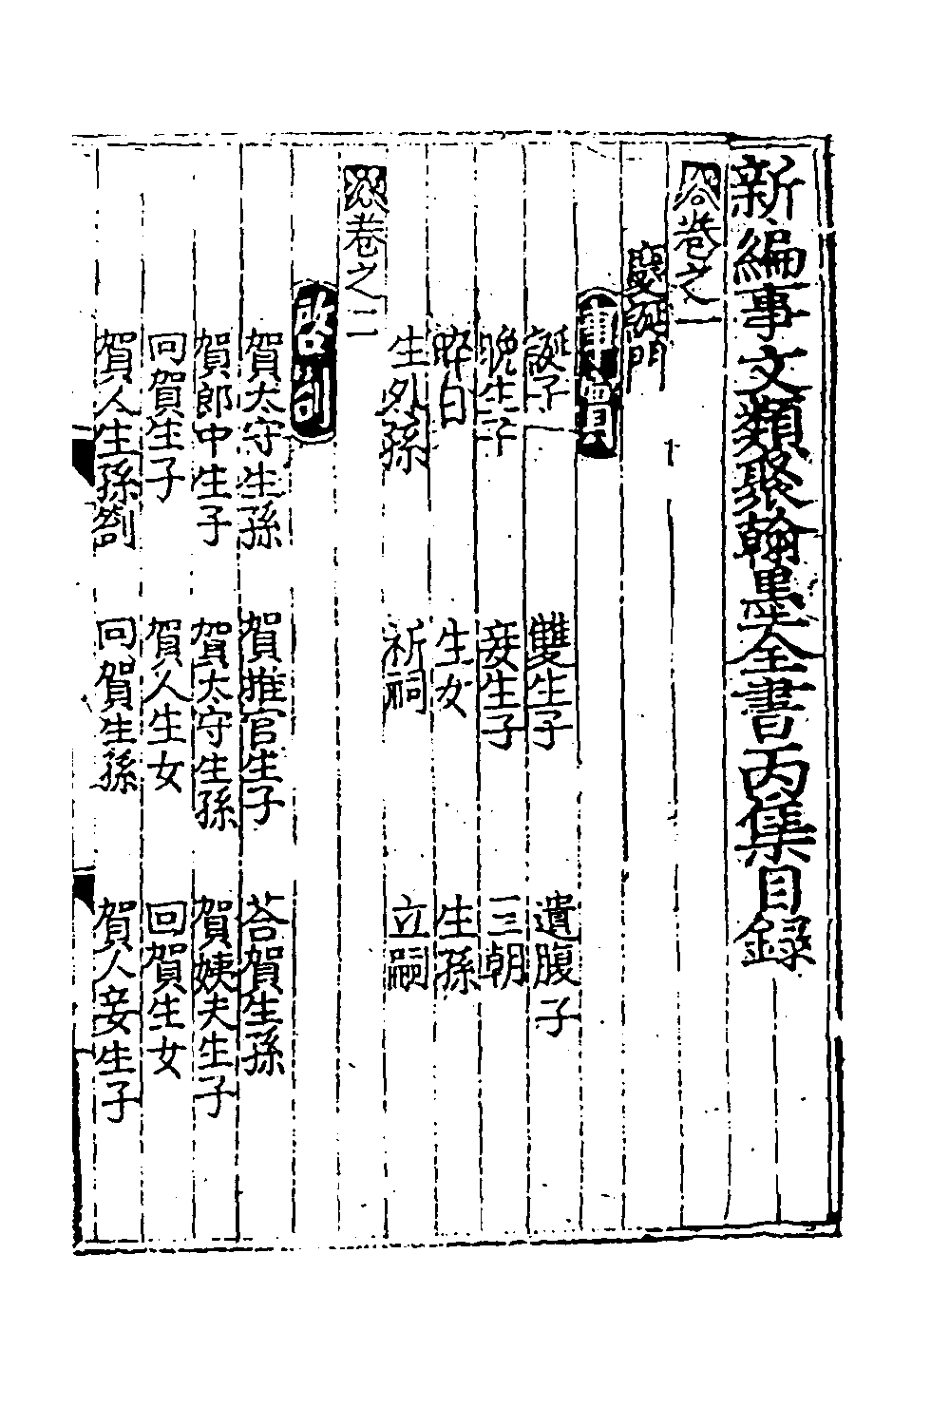 新編事文類聚翰墨全書丙集目錄
卷之一
慶誕門
事實
誕子 雙生子 遺腹子
晚生子 妾生子 三朝
晬日 生女 生孫
生外孫 祈祠 立嗣
卷之二
啓劄
賀太守生孫 賀推官生子 荅賀生孫
賀郎中生子 賀太守生孫 賀姨夫生子
回賀生子 賀人生女 回賀生女
賀人生孫劄 回賀生孫 賀人妾生子